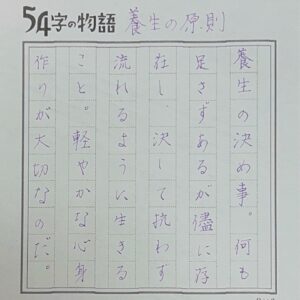 54字の物語 養生の原則
養生の決め事。何も
足さずあるが儘に存
在し、決して抗わず
流れるように生きる
こと。軽やかな心身
作りが大切なのだ。